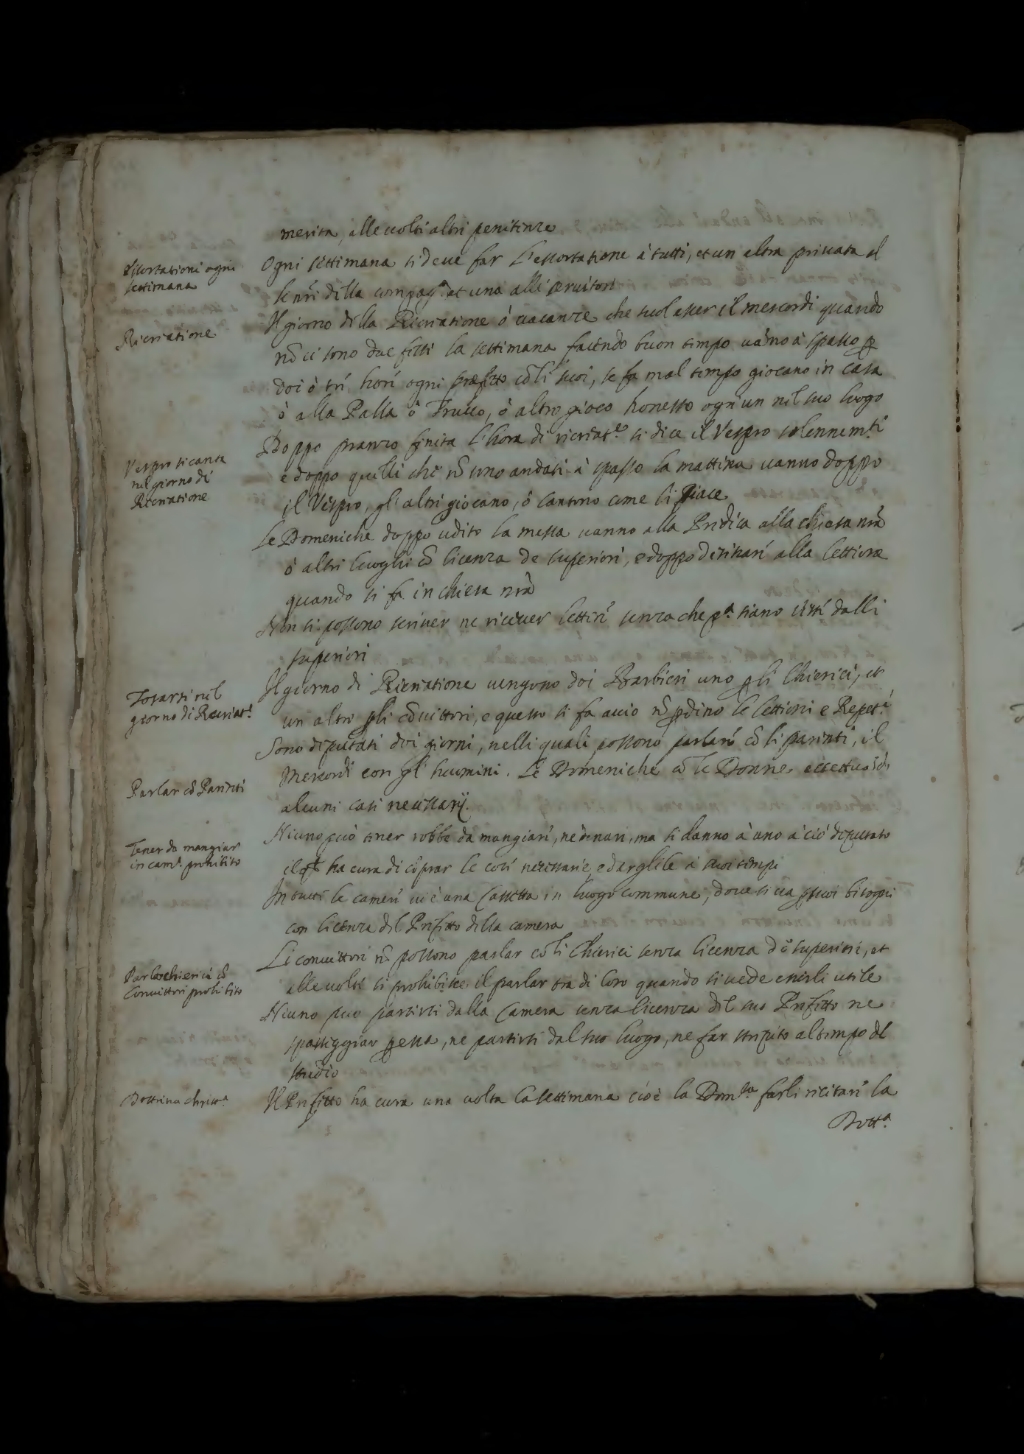 merita, alle uolte altri penitenze
Essortationi ogni
settimana
Ogni settimana si deue far l'essortatione à tutti, et un altra priuata al
li nri della compag.ª et una alli seruitori
Ricreatione
Il giorno della Ricreatione ò uacanze che suol esser il mercordi quando
nõ ci sono due feste la settimana facendo buon tempo uãno à spasso ꝑ
doi ò tre hore ogni prefetto cõ li suoi, se fa mal tempo giocano in casa
ò alla Palla ò Trucco, ò altro gioco honesto ogn'un nel suo luogo
Vespro si canta
nel giorno di
Ricreatione
Doppo pranzo finita l'hora di ricreat.e si dice il Vespro solennemte
e doppo quelli che nõ sono andati à spasso la mattina uanno doppo
il Vespro, gl'altri giocano, ò cantano come li piace
Le Domeniche doppo udito la messa uanno alla Predica alla chiesa nrã
ò altri luoghi cõ licenza de superiori, e doppo desinare alla lettione
quando si fa in chiesa nrã
Non si possono scriuer ne riceuer lettere senza che pª siano uiste dalli
superiori
Tosarsi nel
giorno di Recreat.e
Il giorno di Ricreatione uengono doi Barbieri uno ꝑ li Chierici, et
un altro ꝑ li cõuittori, e questo si fa acciò nõ ꝑdino le lettioni e Repet.i
Parlar cõ Parenti
Sono deputati doi giorni, nelli quali possono parlare cõ li parenti, il
Mercordi con gl'huomini. Le Domeniche cõ le Donne, eccettuati
alcuni casi necessarij.
Tener da mangiar
in cam.e prohibito
Niuno può tener robbe da mangiare, ne denari, ma si danno à uno à ciò deputato
il qle ha cura di cõprar le cose necessarie, e dargliele à suoi tempi
In tutte le camere ui è una cassetta in luogo commune, doue si ua ꝑ suoi bisogni
con licenza del Prefetto della camera
Parlar chierici cõ
Conuittori prohibito
Li conuittori nõ possono parlar cõ li Chierici senza licenza de superiori, et
alle uolte si prohibisce il parlar trà di loro quando si uede esserli utile
Niuno puo partirsi dalla Camera senza licenza del suo Prefetto ne
passeggiar ꝑ essa, ne partirsi dal suo luogo, ne far strepito al tempo del
studio
Dottrina christ.ª
Il Prefetto ha cura una uolta la settimana cioè la Dom.ca farli recitare la
Dott.ª